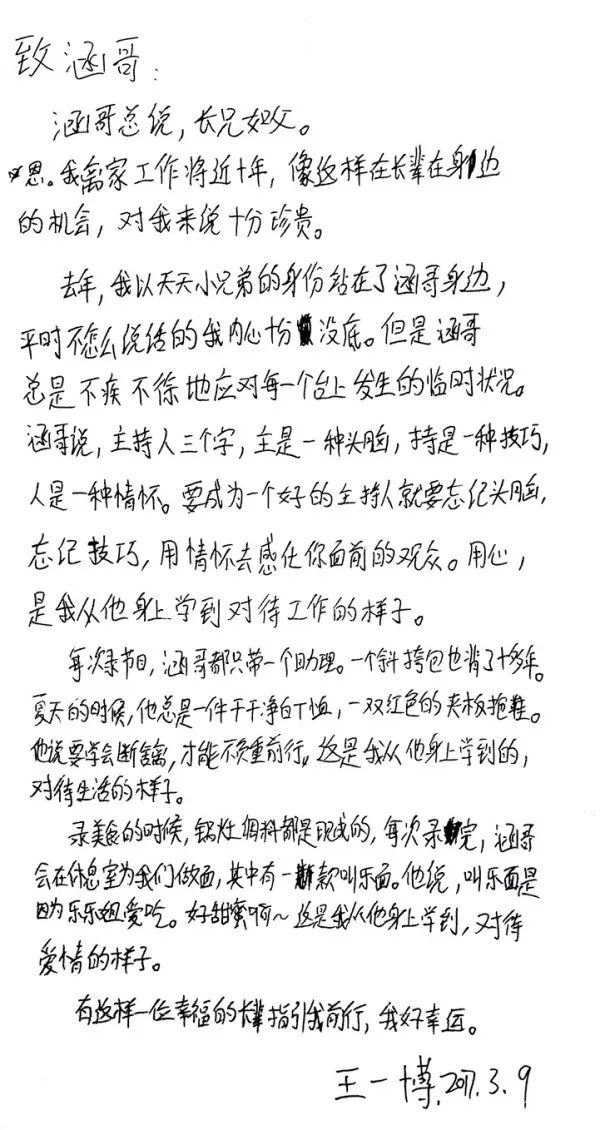 致涵哥：
涵哥总说，长兄如父。
恩。我离家工作将近十年，像这样在长辈在身边
的机会，对我来说十分珍贵。
去年，我以天天小兄弟的身份站在了涵哥身边，
平时不怎么说话的我内心十分没底。但是涵哥
总是不疾不徐地应对每一个台上发生的临时状况。
涵哥说，主持人三个字，主是一种头脑，持是一种技巧，
人是一种情怀。要成为一个好的主持人就要忘记头脑，
忘记技巧，用情怀去感住你面前的观众。用心，
是我从他身上学到对待工作的样子。
每次录节目，涵哥都只带一个助理。一个斜挎包也背了十多年。
夏天的时候，他总是一件干干净白T恤，一双红色的夹板拖鞋。
他说要学会断舍离，才能不负重前行。这是我从他身上学到的，
对待生活的样子。
录美食的时候，锅灶调料都是现成的，每次录完，涵哥
会在休息室为我们做面，其中有一款叫乐面。他说，叫乐面是
因为乐乐姐爱吃。好甜蜜啊～这是我从他身上学到，对待
爱情的样子。
有这样一位幸福的长辈指引我前行，我好幸运。
王一博.2017.3.9